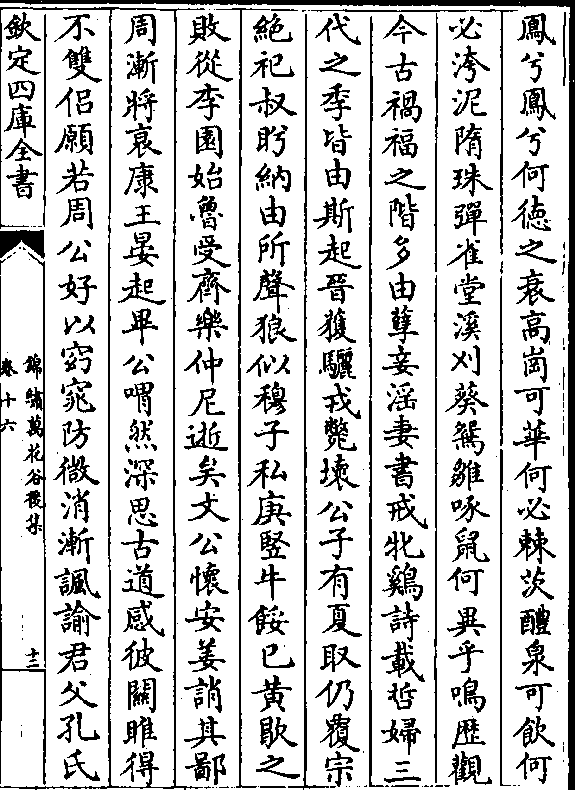 鳳兮鳳兮何徳之衰高岡可華何必棘茨醴泉可飲何
必洿泥隋珠彈雀堂溪刈葵鴛雛啄鼠何異乎鳴歴觀
今古禍福之階多由孽妾淫妻書戒牝鷄詩載哲婦三
代之季皆由斯起晉獲驪戎斃壊公子有夏取仍覆宗
絶祀叔肸納由所聲狼似穆子私庚豎牛餒己黄歇之
敗從李園始魯受齊樂仲尼逝矣文公懷安姜誚其鄙
周漸將衰康王晏起畢公喟然深思古道感彼關雎得
不雙侶願若周公好以窈窕防微消漸諷諭君父孔氏
欽定四庫全書
錦繡萬花谷後集
卷十六
十三